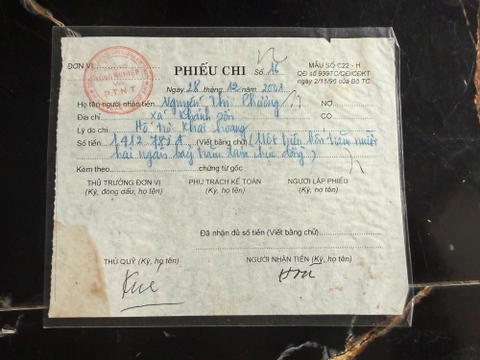 ĐƠN VỊ
NÔNG NGHIỆP
P.T.N.T
PHIẾU CHI Số 16
MẪU SỐ C22 - H
QĐ số 999TC/QĐ/CĐKT
ngày 2/11/96 của Bộ TC
Ngày 28 tháng 12 năm 2001
Họ tên người nhận tiền Nguyễn Thị NỢ
Địa chỉ xã Khánh CÓ
Lý do chi Hỗ trợ khai hoang
Số tiền 1.412.750đ (Viết bằng chữ) (Một triệu bốn trăm mười
hai ngàn bảy trăm năm chục đồng)
Kèm theo chứng từ gốc
THỦ TRƯỞNG ĐƠN VỊ PHỤ TRÁCH KẾ TOÁN NGƯỜI LẬP PHIẾU
(Ký, đóng dấu, họ tên) (Ký, họ tên) (Ký, họ tên)
Đã nhận đủ số tiền (Viết bằng chữ)
THỦ QUỸ (Ký, họ tên) NGƯỜI NHẬN TIỀN (Ký, họ tên)